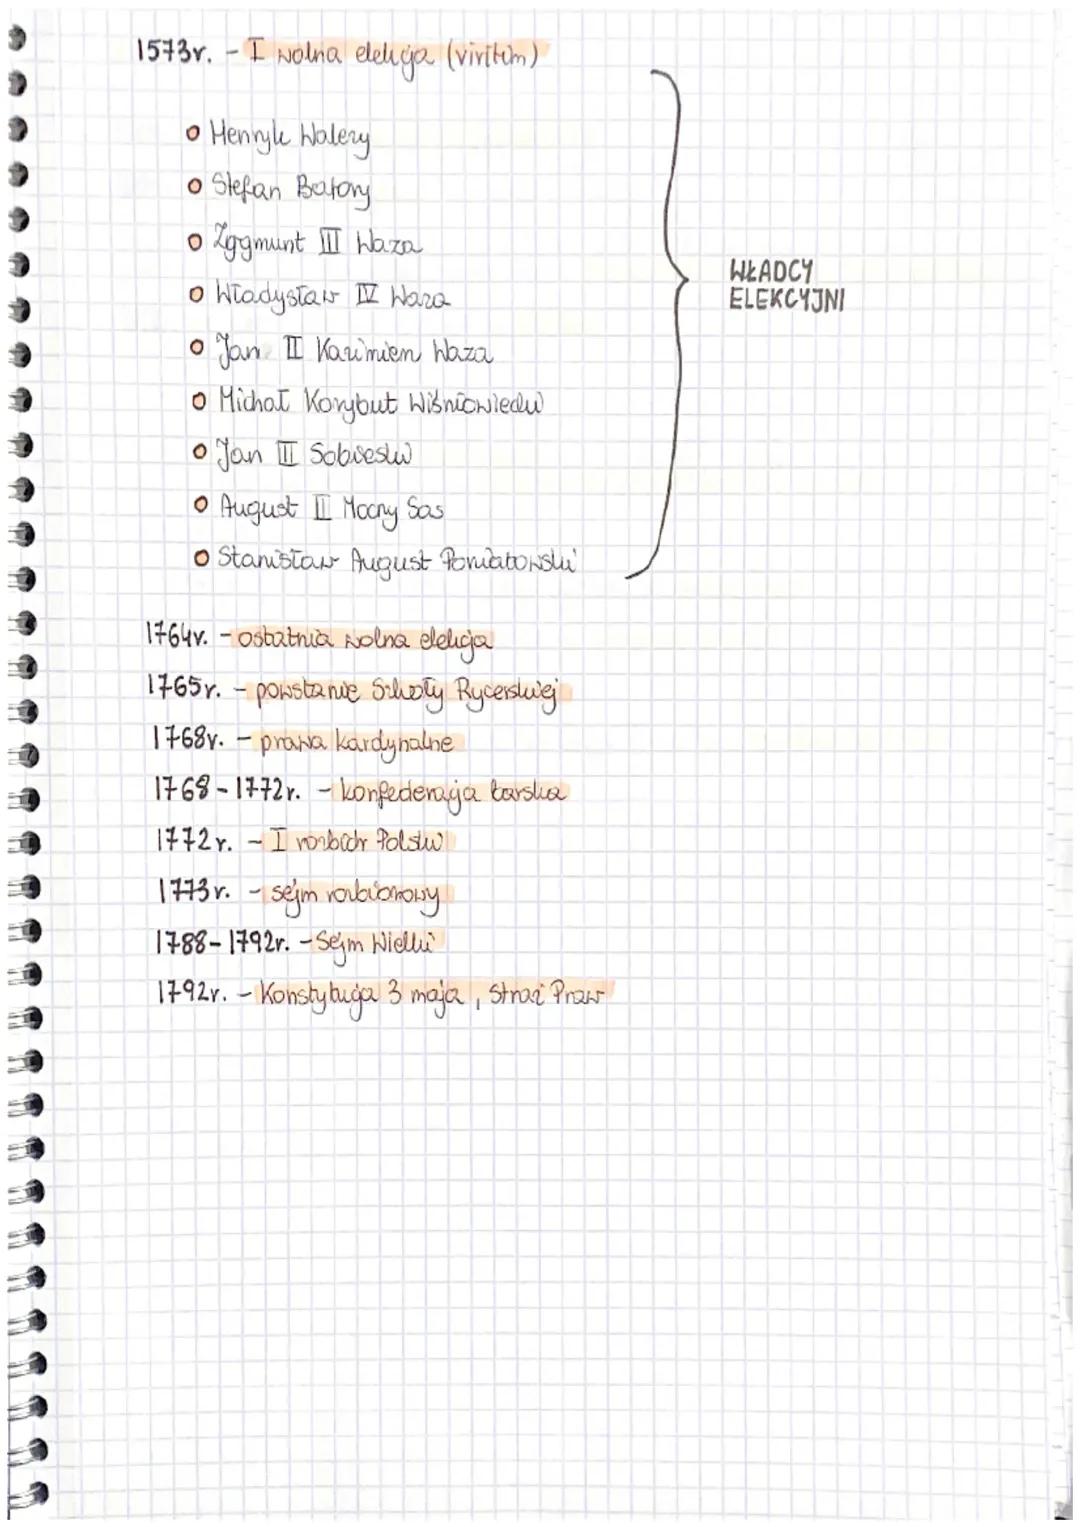 1573r. - I wolna elekcja (viritim)
Henryk Walezy
Stefan Batory
Zygmunt III Waza
Władysław IV Waza
Jan II Kazimierz Waza
Michał Korybut Wiśniowiecki
Jan III Sobieski
August II Mocny Sas
Stanisław August Poniatowski
WŁADCY
ELEKCYJNI
1764r. - ostatnia wolna elekcja
1765r. - powstanie Szkoły Rycerskiej
1768r. - prawa kardynalne
1768-1772r. - konfederacja barska
1772r. - I rozbiór Polski
1773r. - sejm rozbiorowy
1788-1792r. - Sejm Wielki
1792r. - Konstytucja 3 maja, Straż Praw